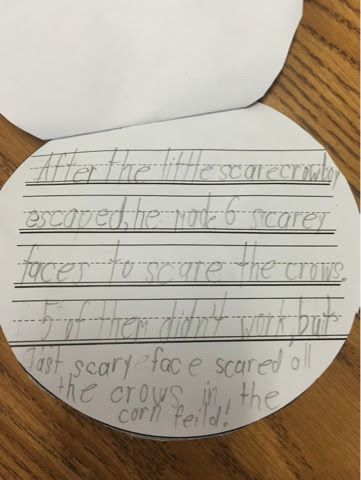 After the little scarecrow boy
escaped, he made 6 scarey
faces to scare the crows.
5 of them didn't work, but
1 last scary face scared all
the crows in the
corn feild!